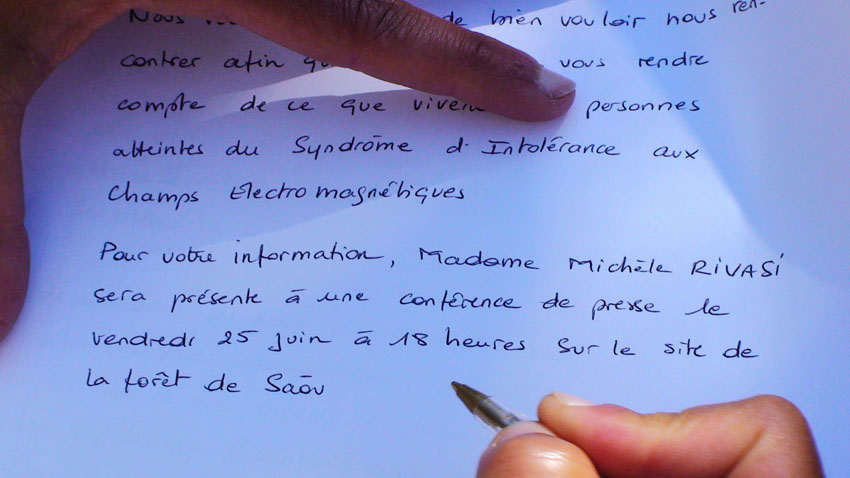 Nous de bien vouloir nous ren-
contrer afin vous rendre
compte de ce que personnes
atteintes du Syndrôme d'Intolérance aux
Champs Electromagnétiques
Pour votre information, Madame Michèle RIVASI
sera présente à une conférence de presse le
vendredi 25 juin à 18 heures sur le site de
la forêt de Saôu